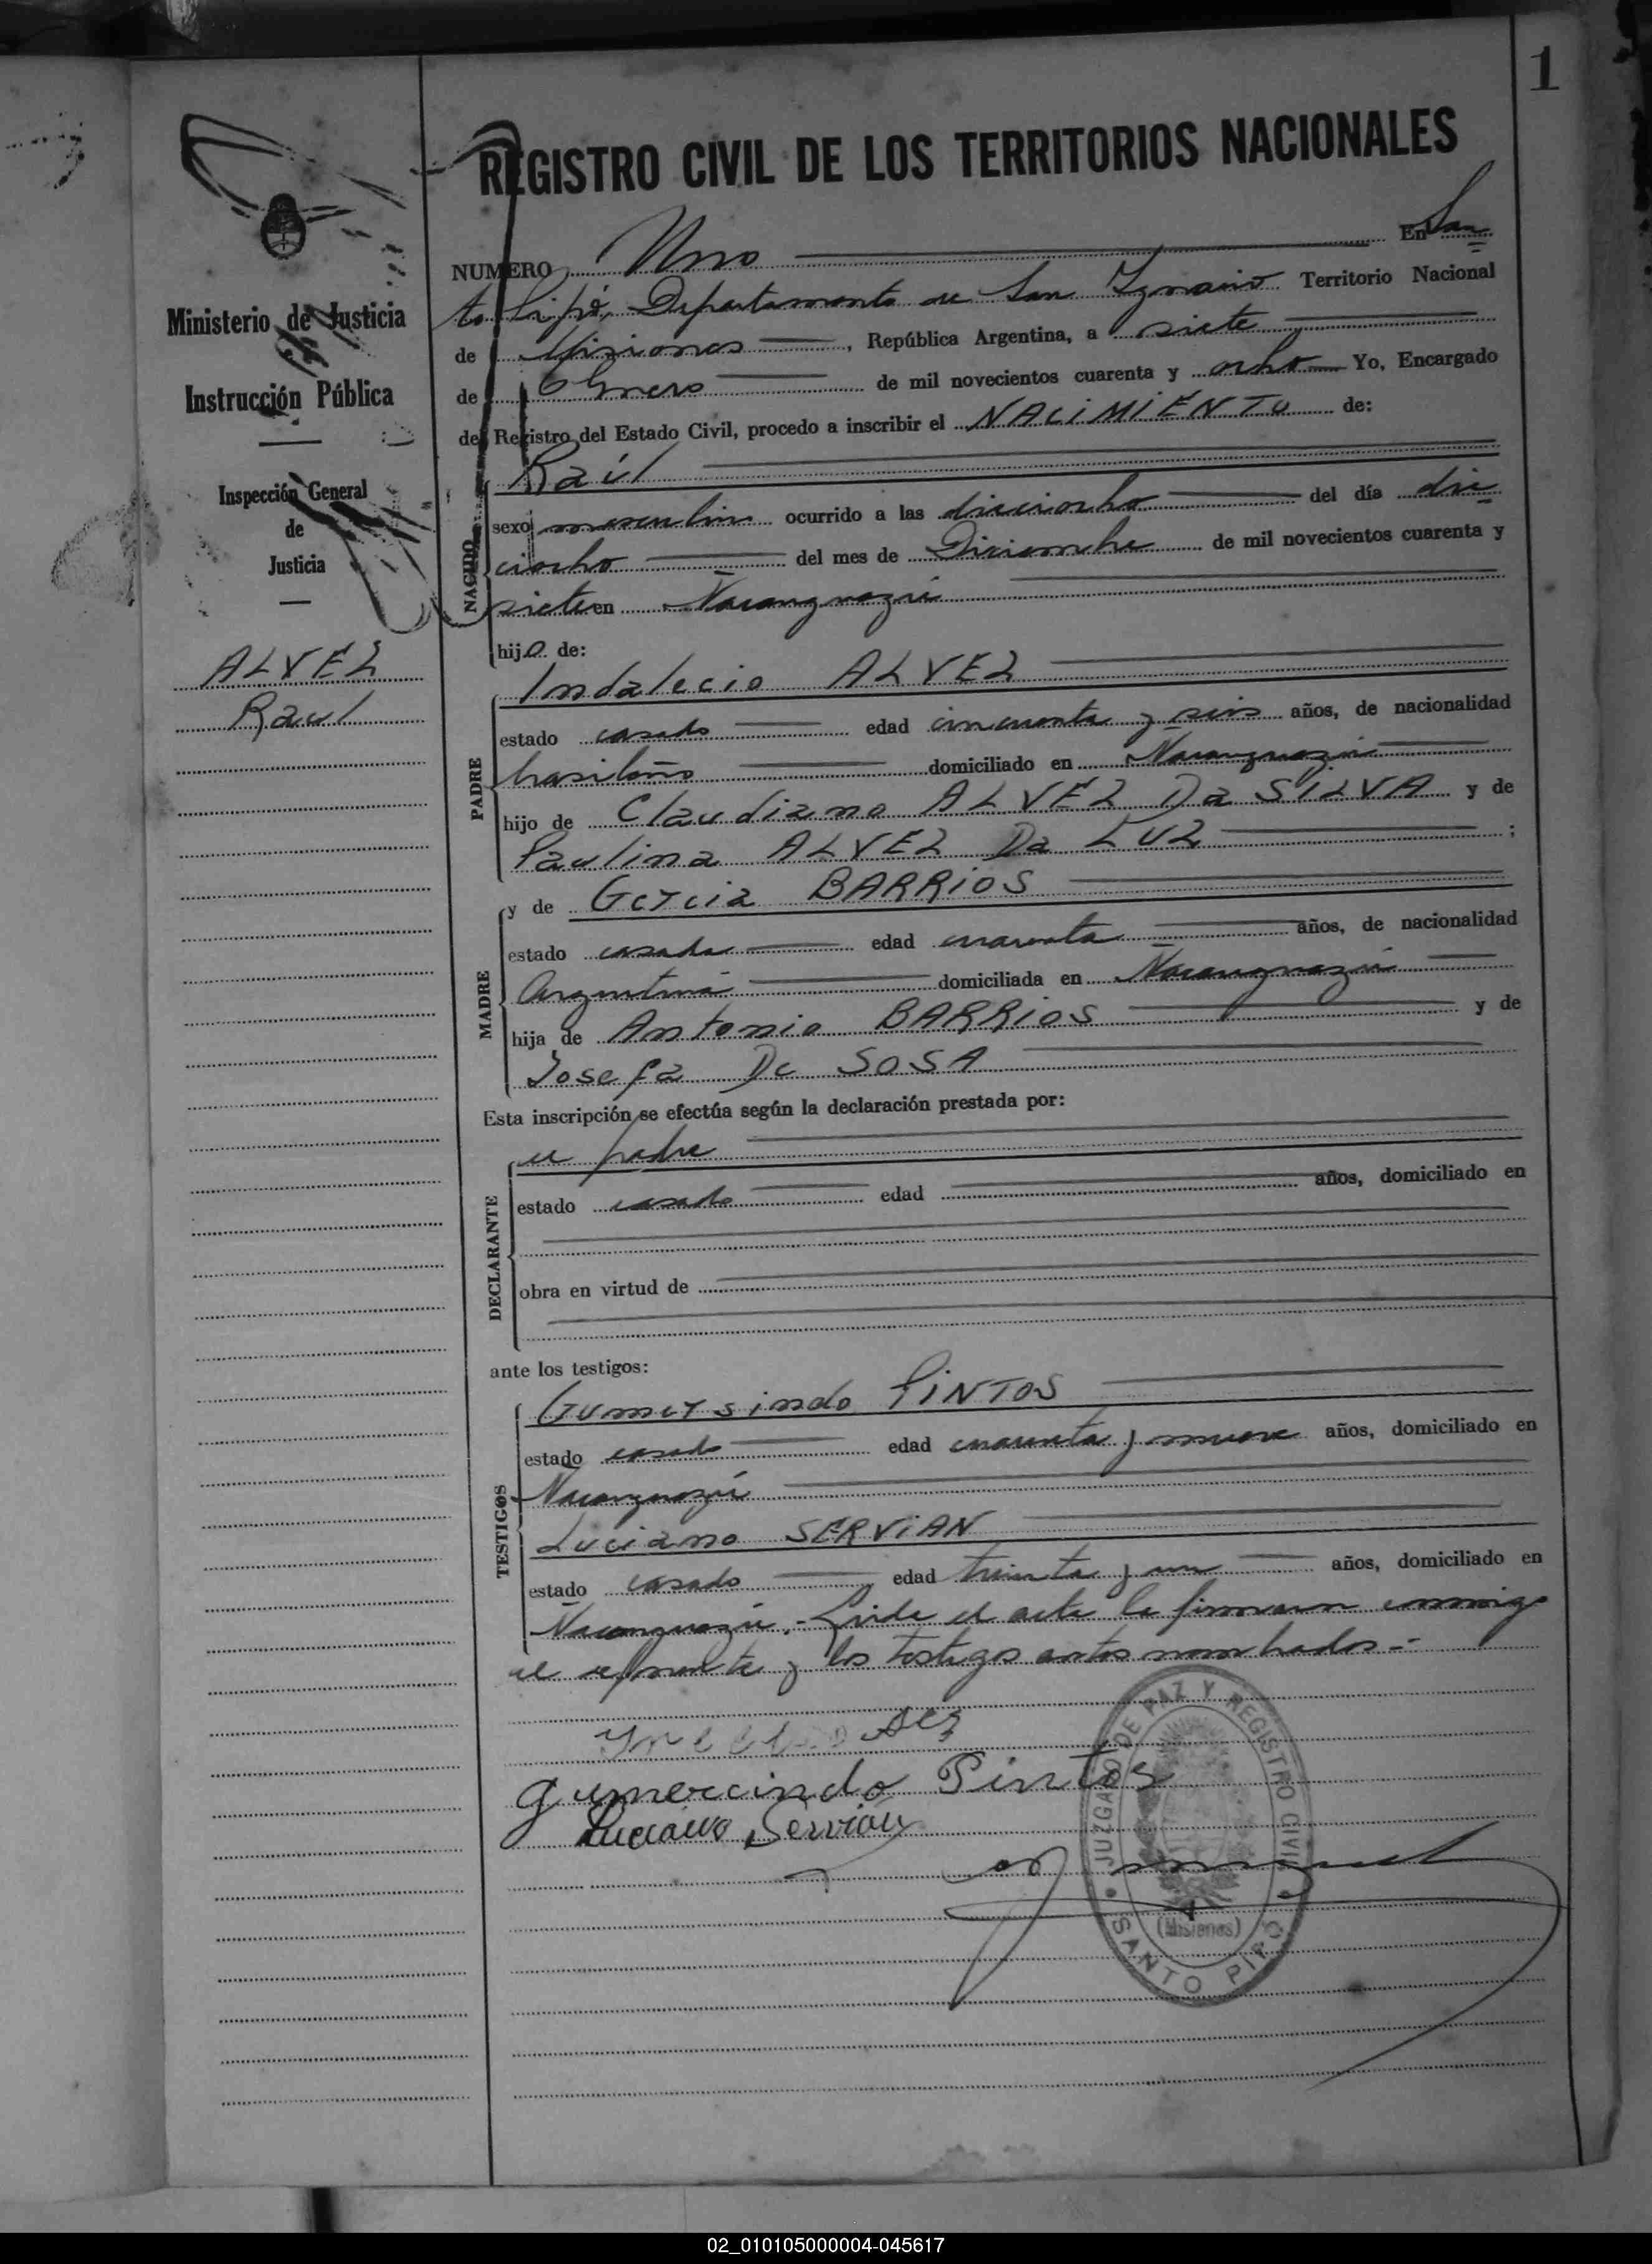 1
REGISTRO CIVIL DE LOS TERRITORIOS NACIONALES
Ministerio de Justicia
Instrucción Pública
Inspección General
de
Justicia
ALVEZ
Raul
NUMERO Uno En San
to Pipó, Departamento de San Ignacio Territorio Nacional
de Misiones, República Argentina, a siete
de Enero de mil novecientos cuarenta y ocho Yo, Encargado
del Registro del Estado Civil, procedo a inscribir el NACIMIENTO de:
NACIDO
Raúl
sexo masculino ocurrido a las dieciocho del día die
ciocho del mes de Diciembre de mil novecientos cuarenta y
siete en Ñacanguazú
hijo de:
PADRE
Indalecio ALVEZ
estado casado edad cincuenta y seis años, de nacionalidad
brasileño domiciliado en Ñacanguazú
hijo de Claudiano ALVEZ Da SILVA y de
Paulina ALVEZ Da LUZ;
MADRE
y de Gercia BARRIOS
estado casada edad cuarenta años, de nacionalidad
Argentina domiciliada en Ñacanguazú
hija de Antonio BARRIOS y de
Josefa De SOSA
Esta inscripción se efectúa según la declaración prestada por:
DECLARANTE
el padre
estado casado edad años, domiciliado en
obra en virtud de
ante los testigos:
TESTIGOS
Gumersindo PINTOS
estado casado edad cuarenta y nueve años, domiciliado en
Ñacanguazú
Luciano SERVIAN
estado casado edad treinta y un años, domiciliado en
Ñacanguazú.- Leida el acta la firmaron conmigo
el y los testigos antes nombrados.-
gumercindo Pintos
Luciano Servián
JUZGADO DE PAZ Y REGISTRO CIVIL
(Misiones)
SANTO PIPÓ
02_010105000004-045617